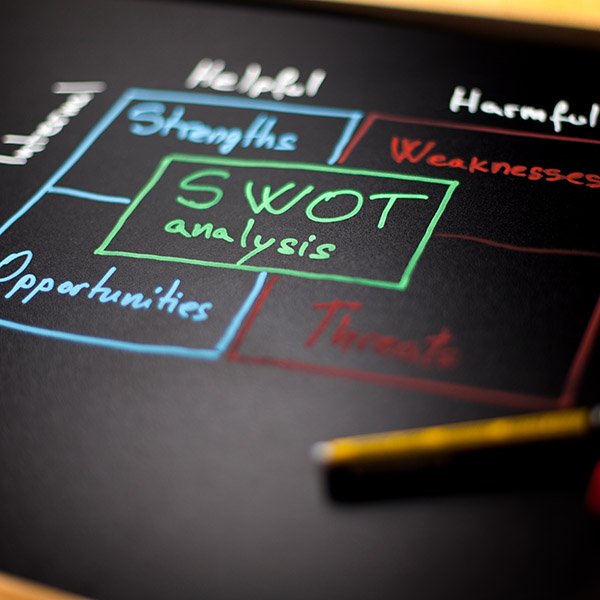 Helpful
Harmful
Internal
Strengths
Weaknesses
SWOT
analysis
Opportunities
Threats